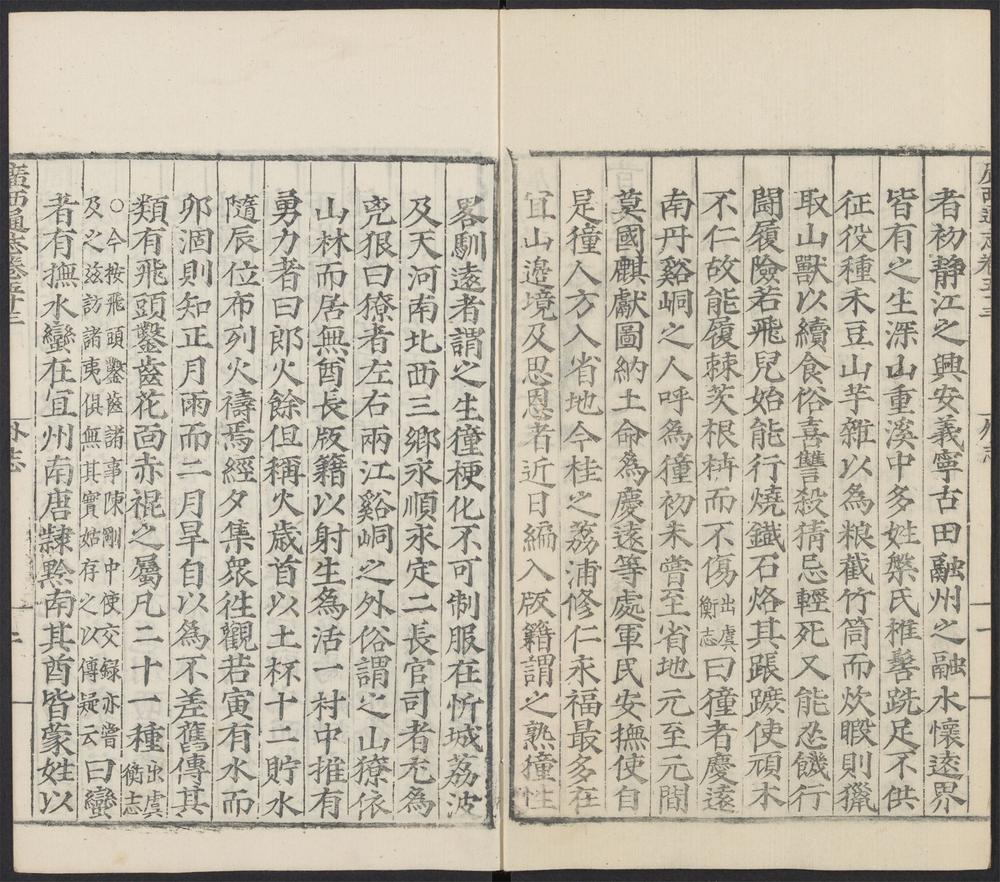 廣西通志卷五十三
外志
二
者初靜江之興安義寧古田融州之融水懷遠界
皆有之生深山重溪中多姓槃氏椎髻跣足不供
征役種禾豆山芋雜以為粮截竹筒而炊暇則獵
取山獸以續食俗喜讐殺猜忌輕死又能忍饑行
鬬履險若飛兒始能行燒鐵石烙其跟蹠使頑木
不仁故能履棘茨根枿而不傷出虞衡志曰獞者慶遠
南丹谿峒之人呼為獞初未嘗至省地元至元間
莫國麒獻圖納土命為慶遠等處軍民安撫使自
是獞入方入省地今桂之荔浦修仁永福最多在
宜山邉境及思恩者近日編入版籍謂之熟獞性
畧馴遠者謂之生獞梗化不可制服在忻城荔波
及天河南北西三鄉永順永定二長官司者尤為
兇狠曰獠者左右兩江谿峒之外俗謂之山獠依
山林而居無酋長版籍以射生為活一村中推有
勇力者曰郎火餘但稱火歲首以土杯十二貯水
隨辰位布列火禱焉經夕集衆徃觀若寅有水而
卯涸則知正月雨而二月旱自以為不差舊傳其
類有飛頭鑿齒花面赤裩之屬凡二十一種出虞衡志
○今按飛頭鑿齒諸事陳剛中使交録亦嘗
及之玆訪諸夷俱無其實姑存之以傳疑云曰蠻
者有撫水蠻在宜州南唐隸黔南其酋皆蒙姓以
廣西通志卷五十三
外志
二